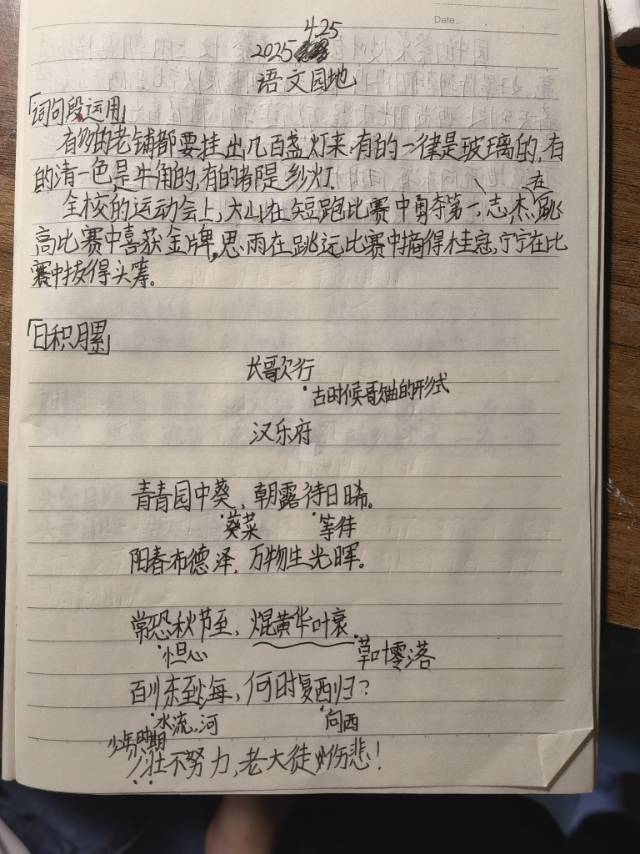 Date.
4.25
2025
语文园地
「词句段运用」
有的老铺都要挂出几百盏灯来.有的一律是玻璃的,有
的清一色是牛角的,有的都是纱灯.
全校的运动会上,大山在短跑比赛中勇夺第一,志杰在跳
高比赛中喜获金牌,思雨在跳远比赛中摘得桂冠,宁宁在比
赛中拔得头筹。
「日积月累」
长歌行
古时候歌曲的形式
汉乐府
青青园中葵,朝露待日晞。
葵菜 等待
阳春布德泽,万物生光晖。
常恐秋节至,焜黄华叶衰.
担心 草叶零落
百川东到海,何时复西归?
水流,河 向西
少年时期
少壮不努力,老大徒伤悲!